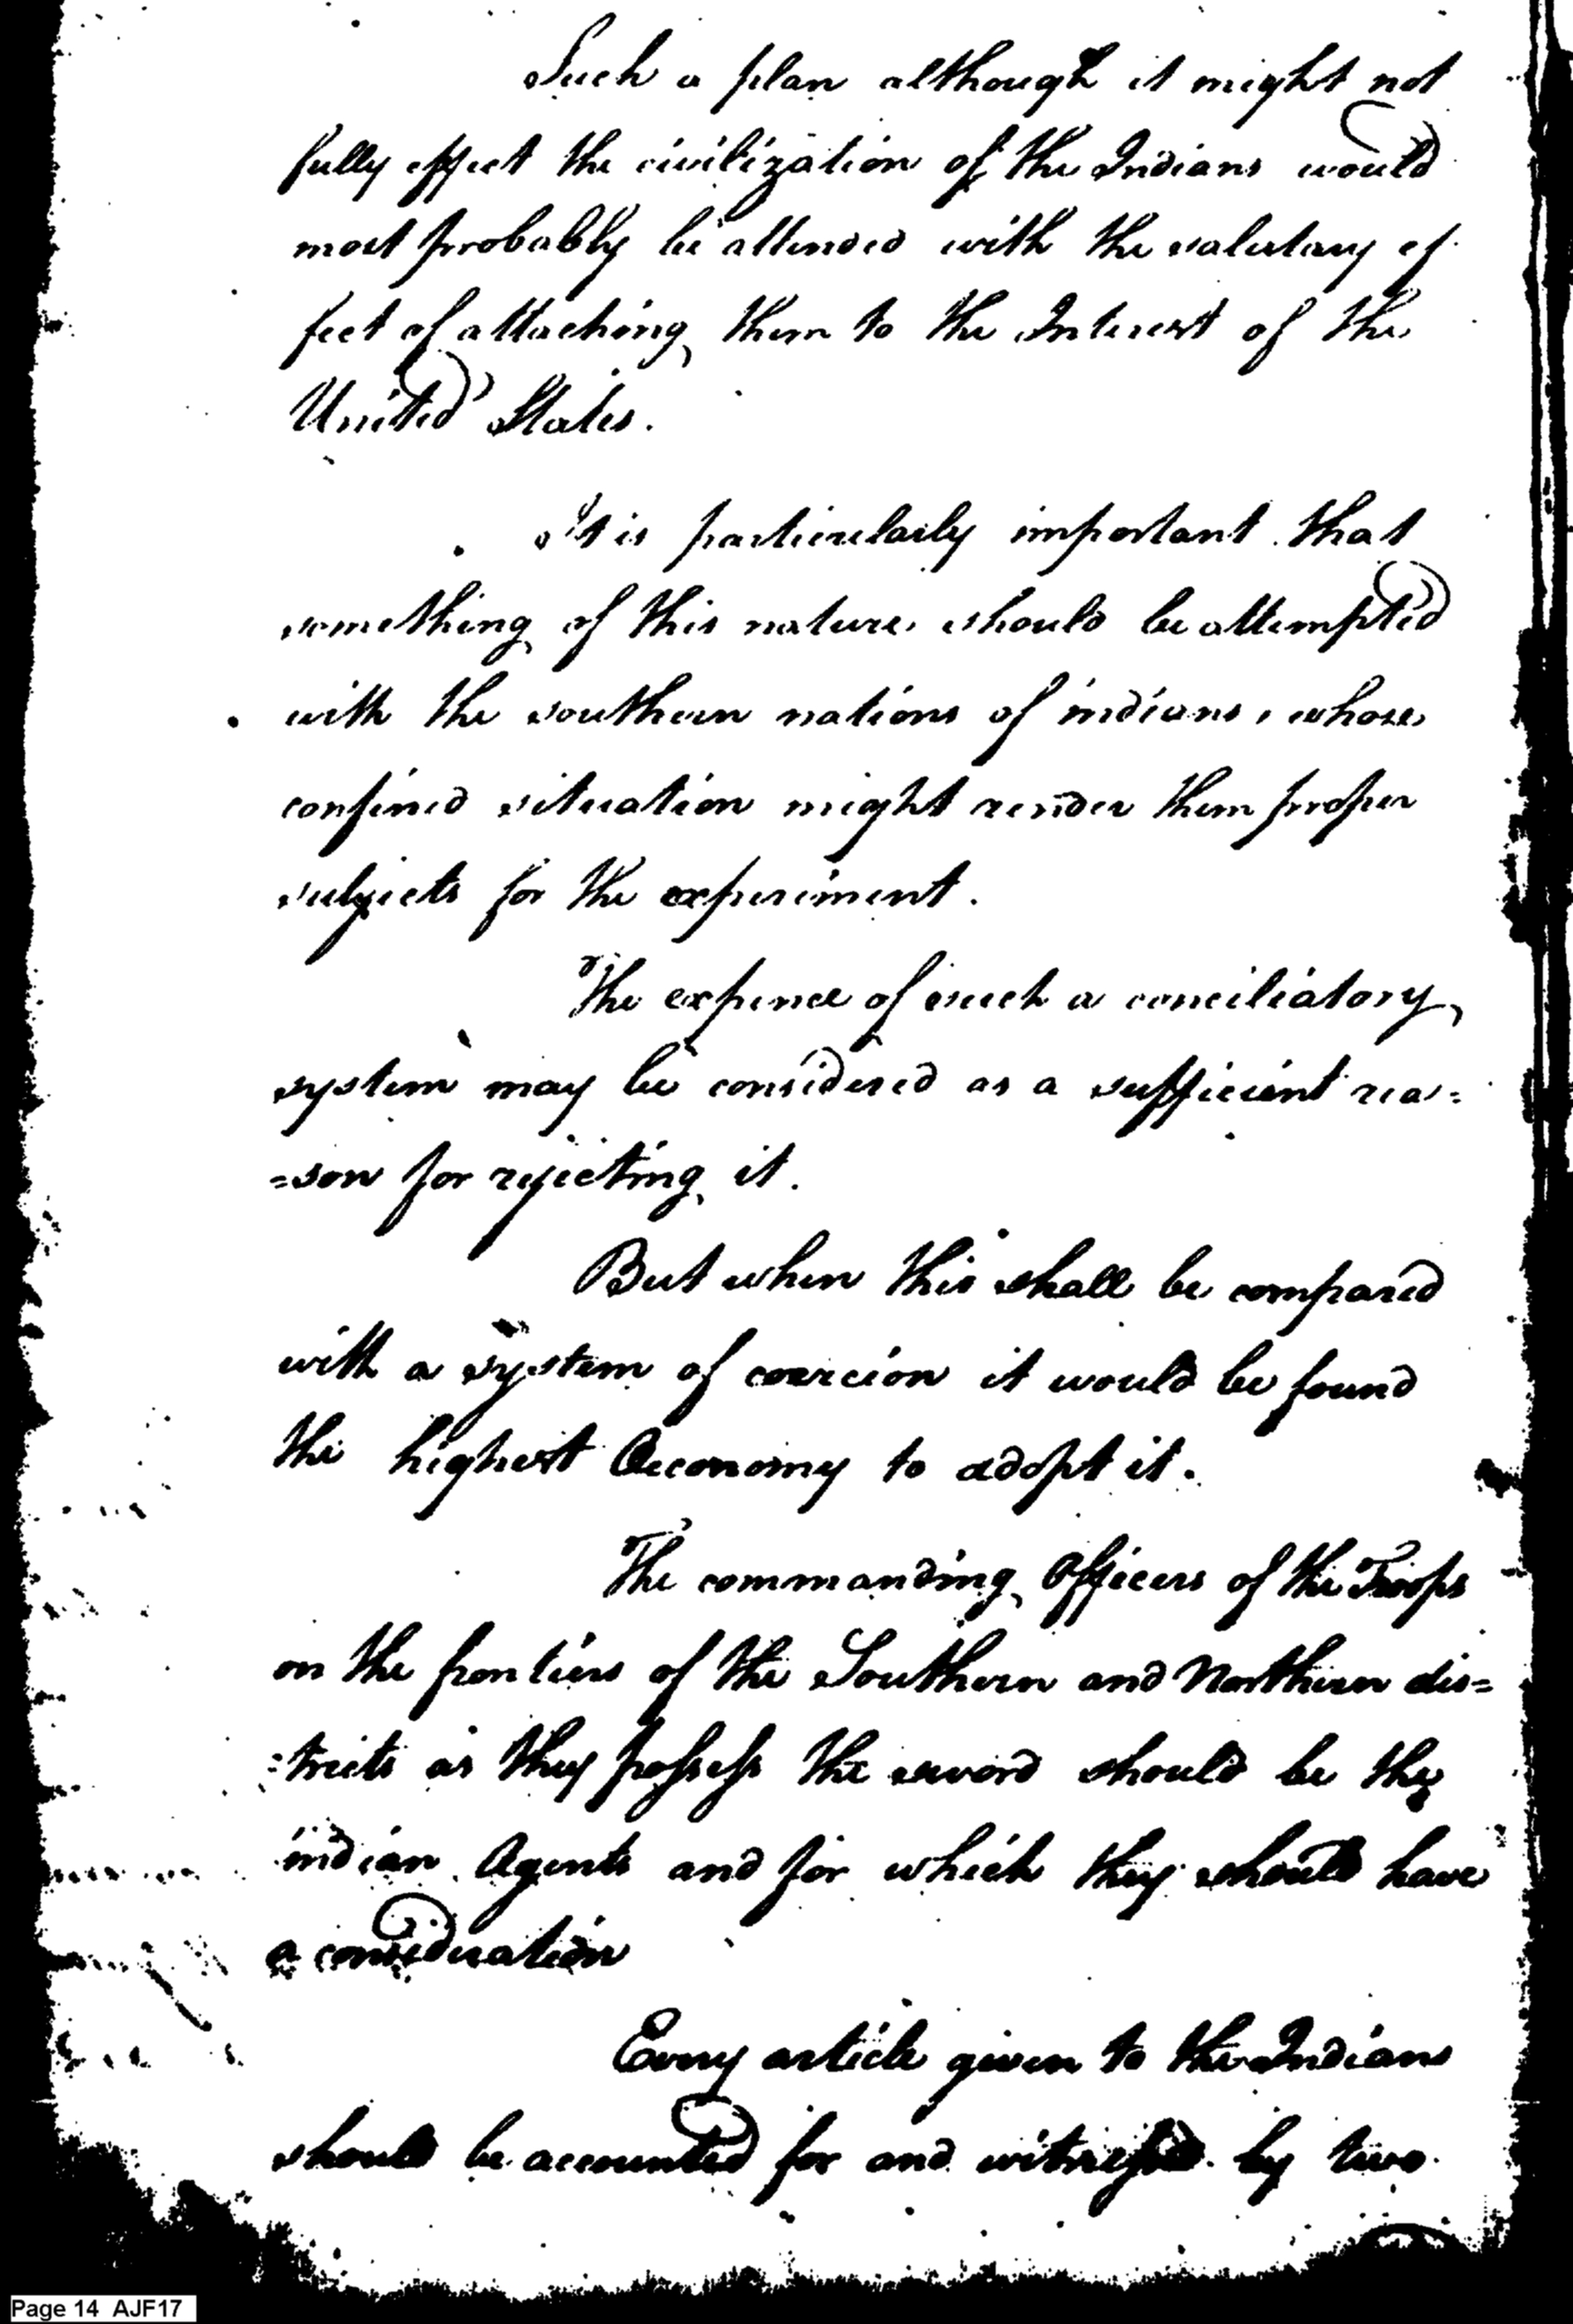 Such a plan although it might not
fully effect the civilization of the Indians would
most probably be attended with the salutary ef
fect of attaching them to the Interest of the
United States.
It is particularly important that
something of this nature should be attempted
with the southern nations of indians, whose
confined situation might render them proper
subjects for the experiment.
The expence of such a conciliatory
system may be considered as a sufficient rea=
=son for rejecting it.
But when this shall be compared
with a system of coercion it would be found
the highest Œconomy to adopt it.
The commanding Officers of the Troops
on the frontiers of the Southern and Northern dis=
=tricts as they possess the sword should be the
indian Agents and for which they should have
a consideration
Every article given to the Indians
should be accounted for and witnessed by two
Page 14 AJF17